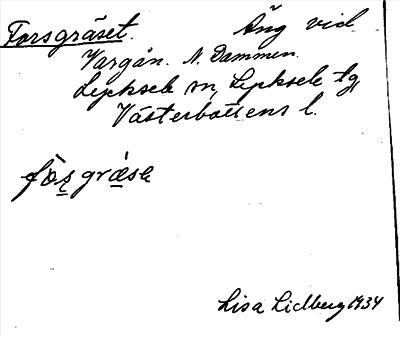 Forsgräset. Äng vid
Vargån. N. Dammen.
Lycksele sn, Lycksele lg,
Västerbottens l.
fòs̲gräse
Lisa Lidberg 1934